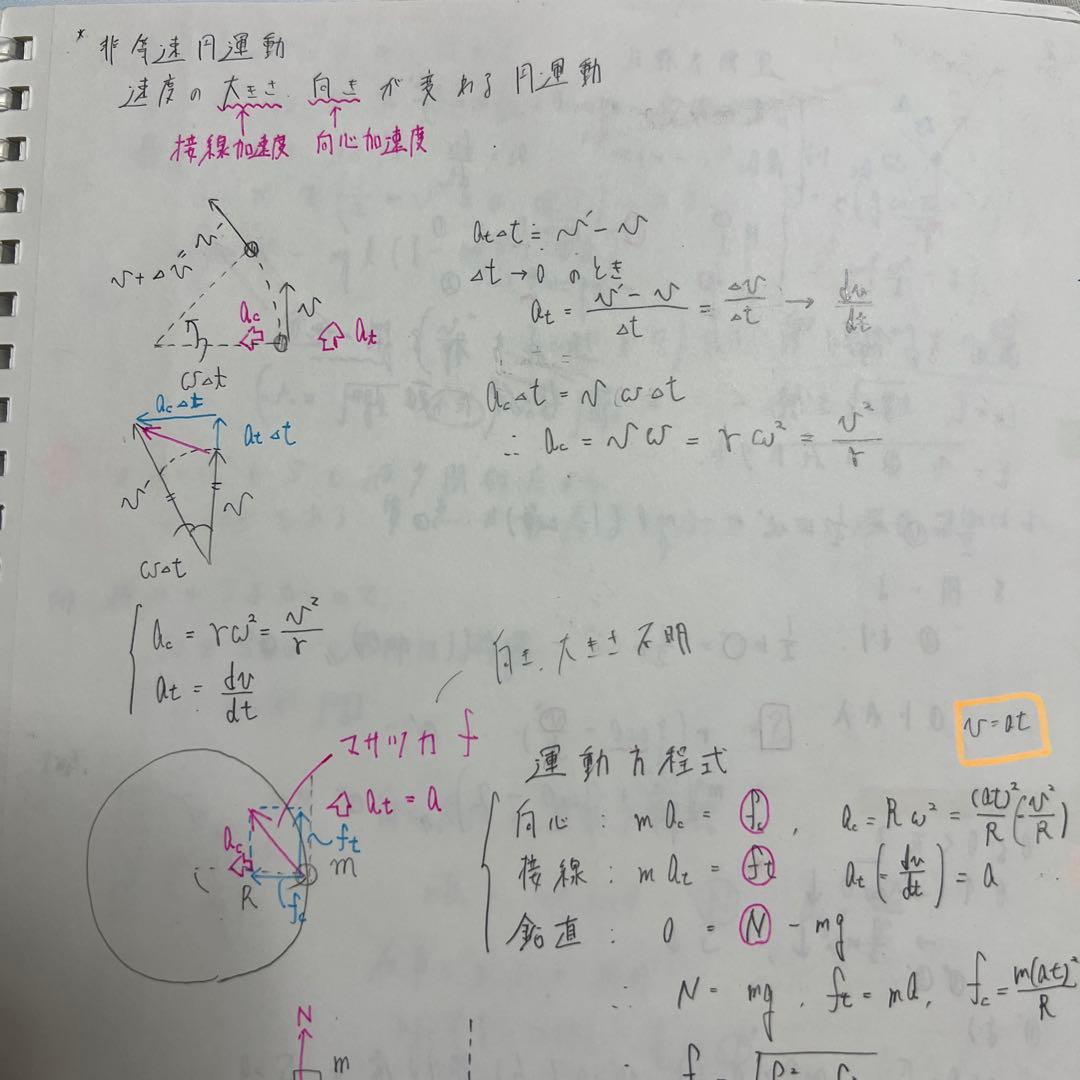 * 非等速円運動
速度の大きさ、向きが変わる円運動
接線加速度 向心加速度
v + Δv = v′
v
ac
at
ωΔt
atΔt ≒ v′ - v
Δt → 0 のとき
at = (v′ - v)/Δt = Δv/Δt → dv/dt
acΔt = vωΔt
∴ ac = vω = rω² = v²/r
acΔt
atΔt
v′
v
ωΔt
ac = rω² = v²/r
at = dv/dt
向き、大きさ不明
マサツ力 f
at = a
ac
ft
m
R
fc
v = at
運動方程式
向心 : m ac = fc , ac = Rω² = (at)²/R (= v²/R)
接線 : m at = ft at (= dv/dt) = a
鉛直 : 0 = N - mg
∴ N = mg , ft = ma , fc = m(at)²/R
N
m